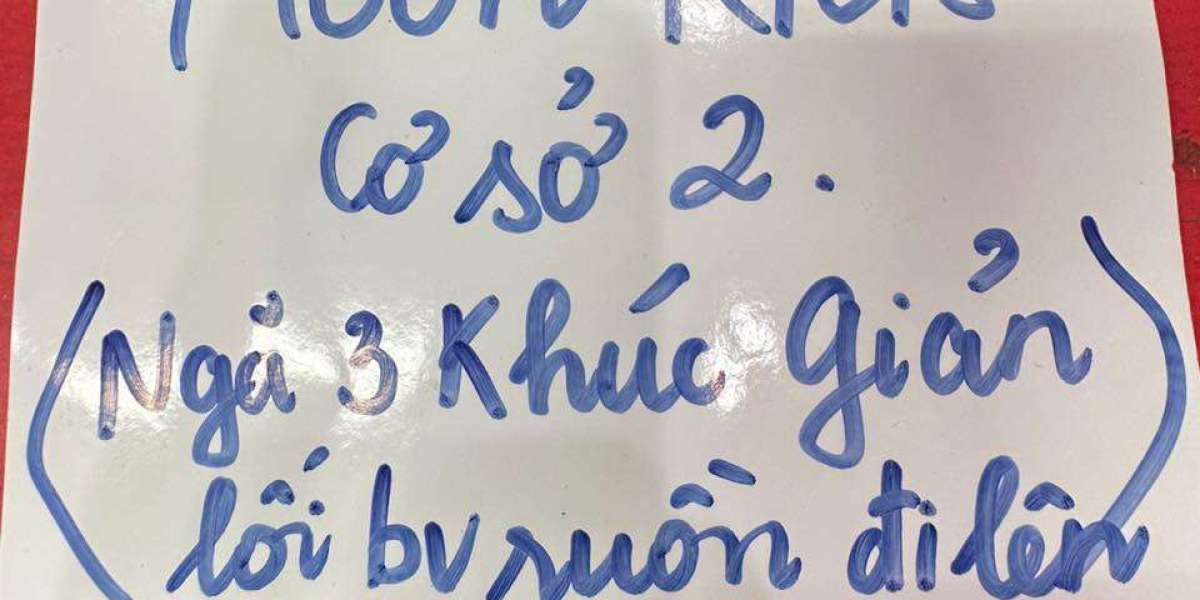 Cơ sở 2.
(Ngả 3 Khúc Giản)
lối bv ruồn đi lên